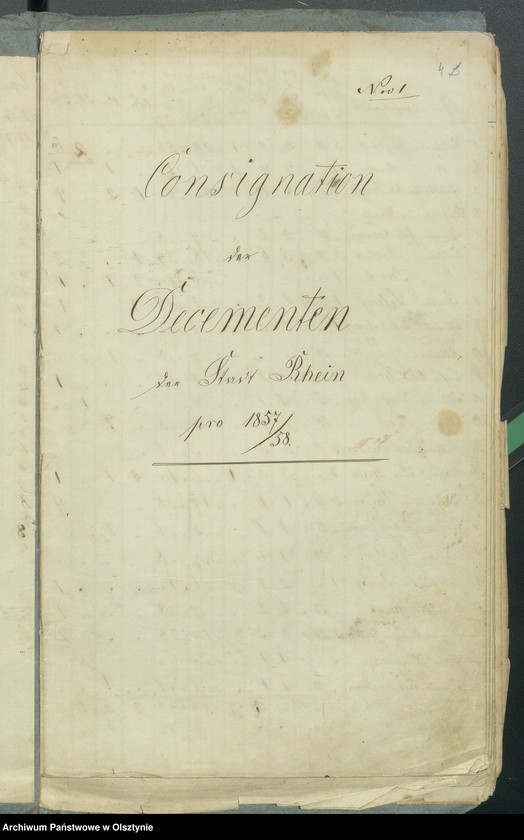 4
Nro 1
Consignation
der
Decementen
der Stadt Rhein
pro 1857/58.
Archiwum Państwowe w Olsztynie